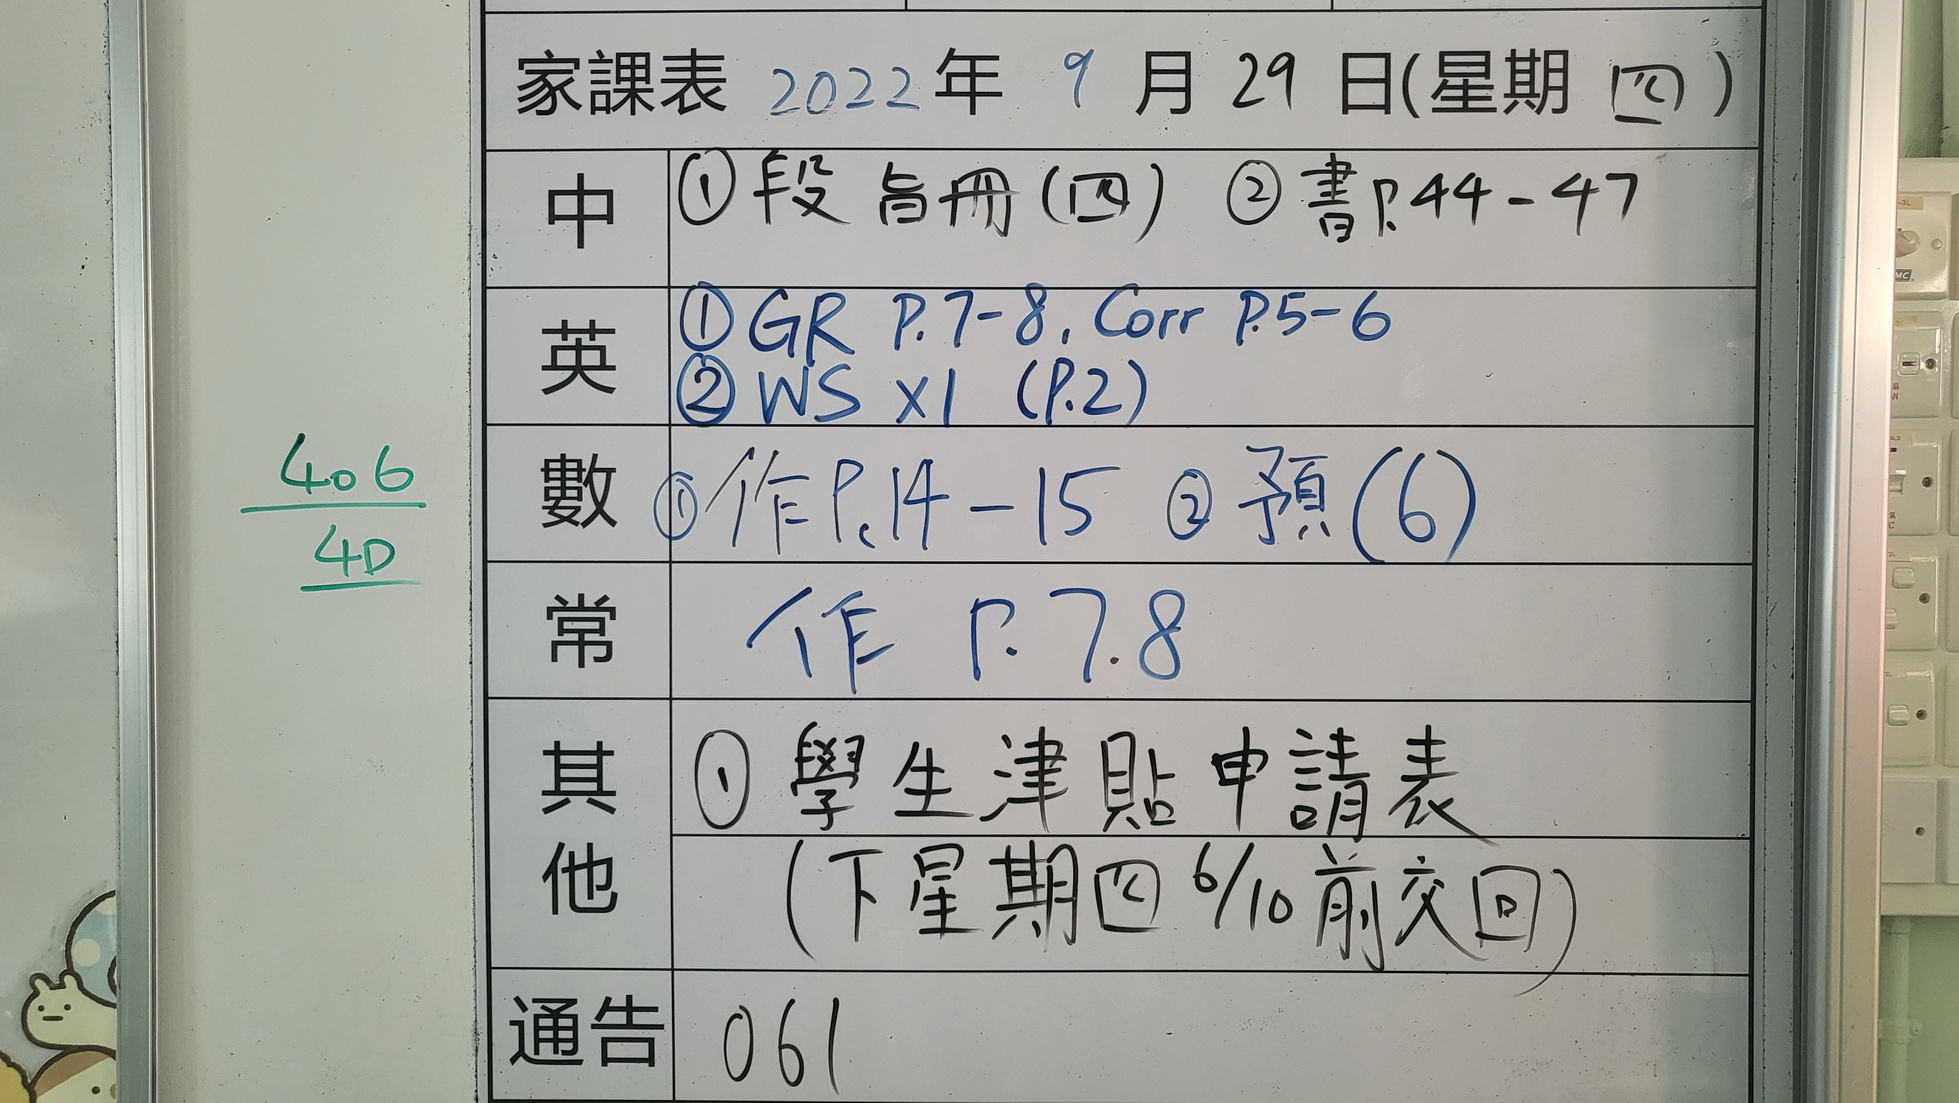 家課表 2022年 9月29日(星期四)
中 ①段旨冊(四) ②書P.44-47
英 ①GR P.7-8, Corr P.5-6
②WS x1 (P.2)
數 ①作P.14-15 ②預(6)
常 作 P.7.8
其他 ①學生津貼申請表
(下星期四 6/10前交回)
通告 061
406
4D